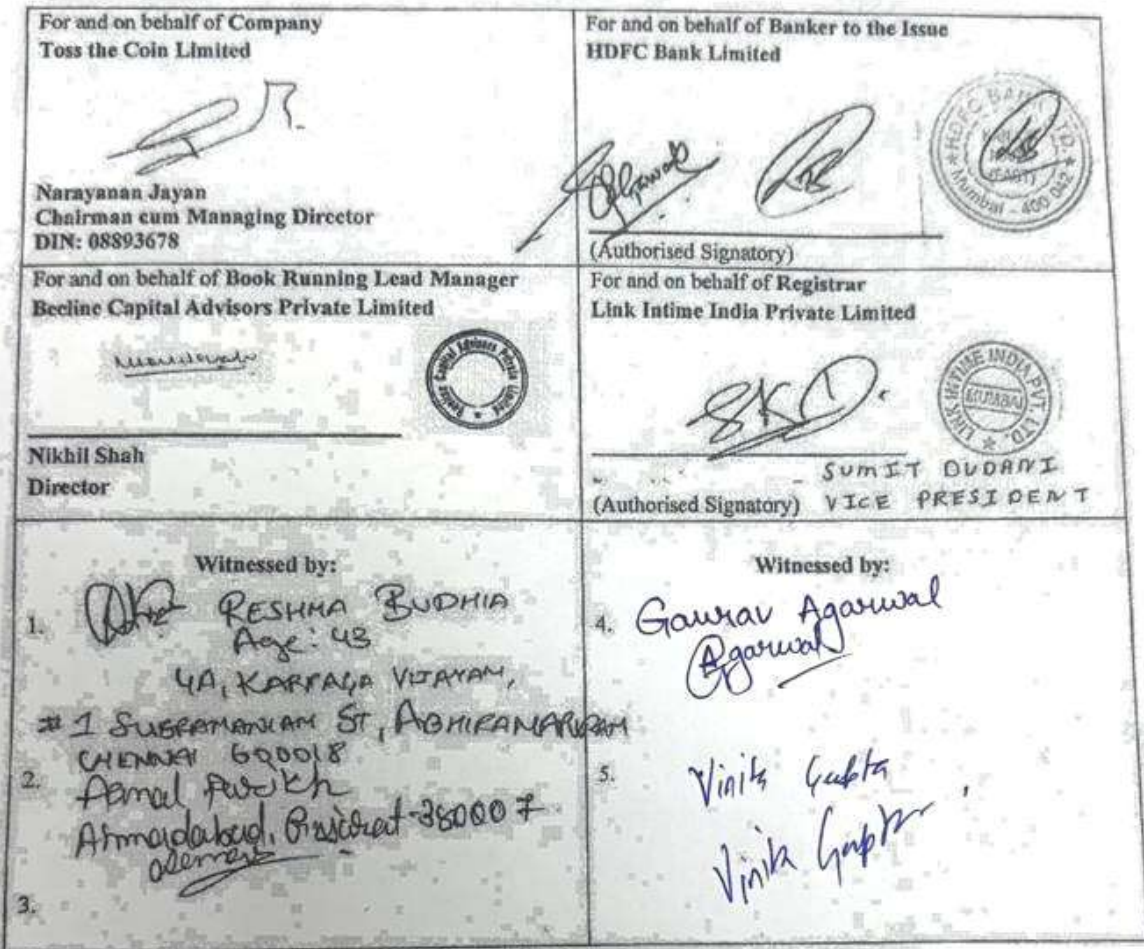 For and on behalf of Company
Toss the Coin Limited
Narayanan Jayan
Chairman cum Managing Director
DIN: 08893678
For and on behalf of Banker to the Issue
HDFC Bank Limited
Agarwal
HDFC BANK LTD.
(EAST)
Mumbai - 400 042
(Authorised Signatory)
For and on behalf of Book Running Lead Manager
Beeline Capital Advisors Private Limited
Beeline Capital Advisors Private Limited
Nikhil Shah
Director
For and on behalf of Registrar
Link Intime India Private Limited
LINK INTIME INDIA PVT. LTD.
MUMBAI
SUMIT DUDANI
(Authorised Signatory) VICE PRESIDENT
Witnessed by:
1. RESHMA BUDHIA
Age: 43
4A, KARPAGA VIJAYAM,
#1 SUBRAMANIAM ST, ABHIRAMAPURAM
CHENNAI 600018
2. Parikh
Ahmadabad, Gujarat-380007
3.
Witnessed by:
4. Gaurav Agarwal
Agarwal
5. Vinita Gupta
Vinita Gupta